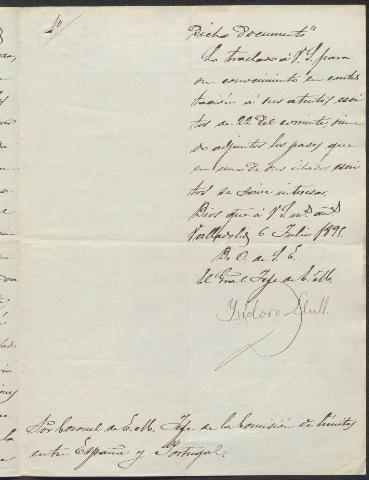 Dicho documento"
Lo traslado á V.S. para
su conocimiento en contes
tación á sus atentos escri
tos de 22 del corriente, sien
do adjuntos los pases que
en uno de sus citados escri
tos se sirve interesar.
Dios gue á V.S. ms. as.
Valladolid 6 Julio 1895
De O. de S. E.
El Gral Jefe de E.M.
Isidoro Llull
Sor Coronel de E.M. Jefe de la Comisión de límites
entre España y Portugal.